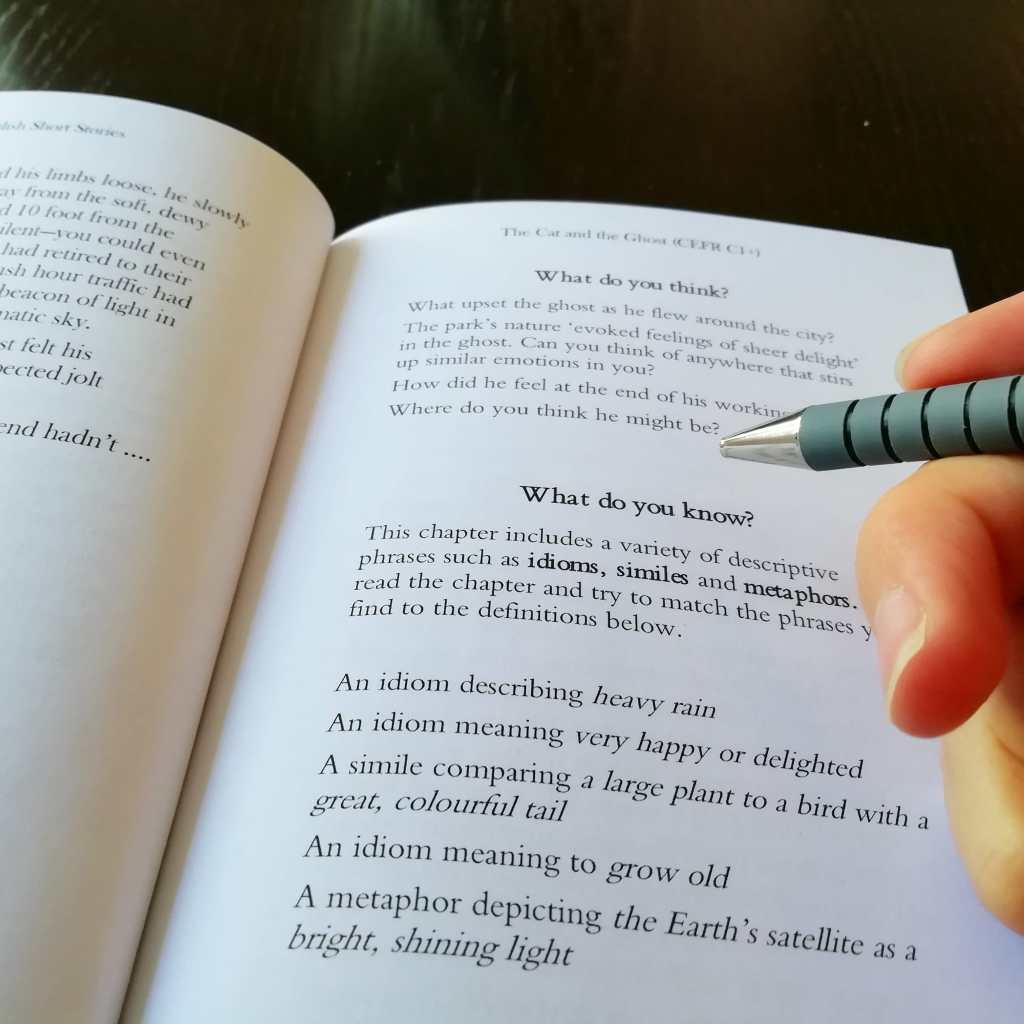 Short Stories
his limbs loose, he slowly
from the soft, dewy
10 foot from the
—you could even
had retired to their
hour traffic had
beacon of light in
sky.
felt his
jolt
hadn't ....
The Cat and the Ghost (CEFR C1+)
What do you think?
What upset the ghost as he flew around the city?
The park's nature 'evoked feelings of sheer delight'
in the ghost. Can you think of anywhere that stirs
up similar emotions in you?
How did he feel at the end of his working
Where do you think he might be?
What do you know?
This chapter includes a variety of descriptive
phrases such as idioms, similes and metaphors.
read the chapter and try to match the phrases
find to the definitions below.
An idiom describing heavy rain
An idiom meaning very happy or delighted
A simile comparing a large plant to a bird with a
great, colourful tail
An idiom meaning to grow old
A metaphor depicting the Earth's satellite as a
bright, shining light